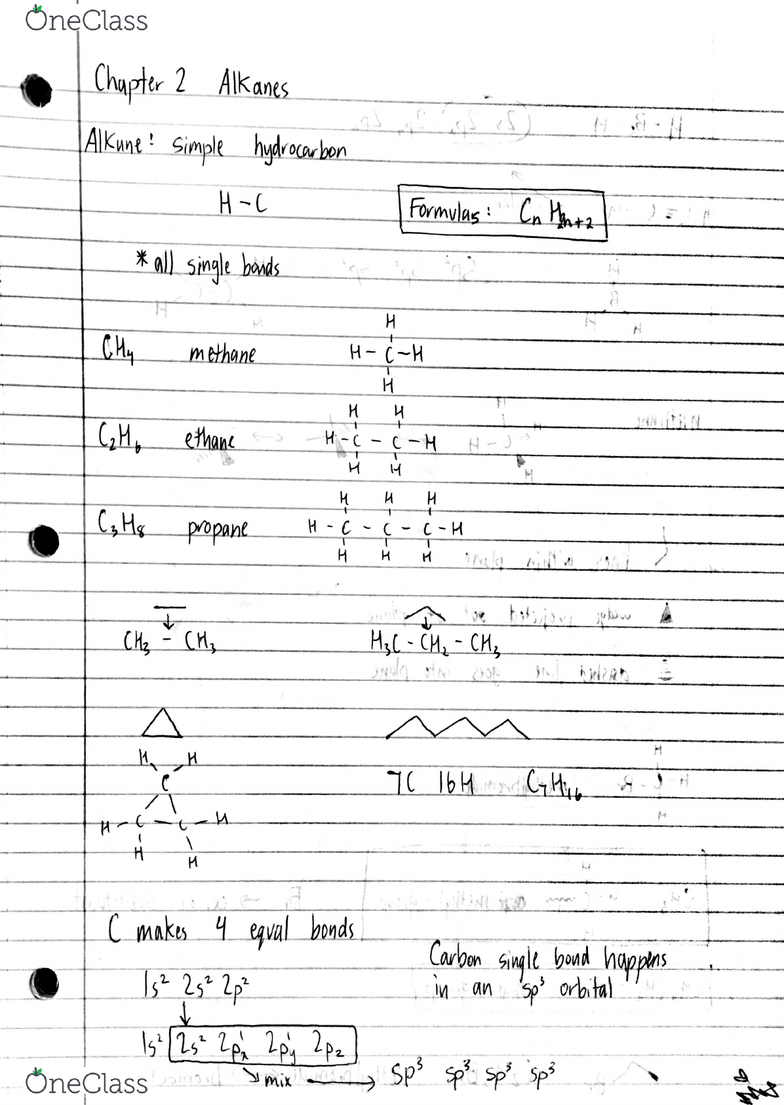 OneClass
Chapter 2 Alkanes
Alkane: simple hydrocarbon
H-C
Formulas: CnH2n+2
*all single bonds
CH4 methane
H
H-C-H
H
C2H6 ethane
H H
H-C-C-H
H H
C3H8 propane
H H H
H-C-C-C-H
H H H
CH3-CH3 H3C-CH2-CH3
H H
C
H-C-C-H
H H
7C 16H C7H16
C makes 4 equal bonds
Carbon single bond happens
in an sp³ orbital
1s² 2s² 2p²
↓
1s² 2s² 2px¹ 2py¹ 2pz
mix → sp³ sp³ sp³ sp³
OneClass